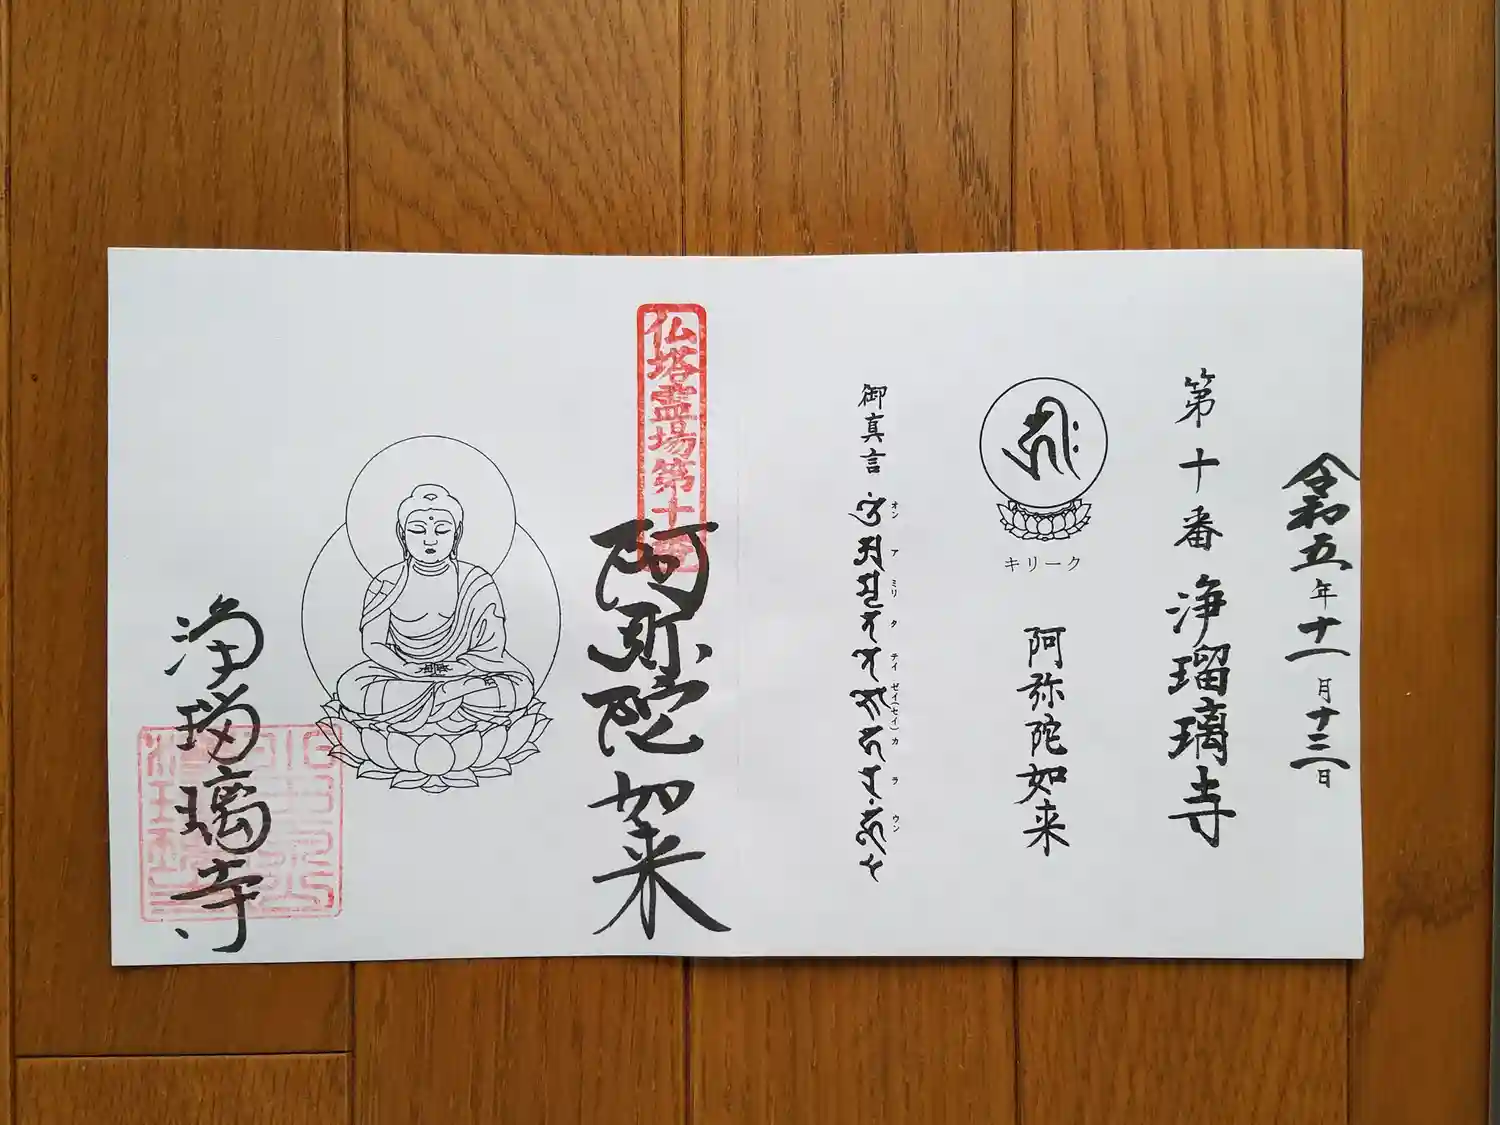 令和五年十一月十三日
第十番 浄瑠璃寺
キリーク
阿弥陀如来
御真言
オン ア ミリ タ テイ ゼイ(セイ) カ ラ ウン
仏塔霊場第十番
阿弥陀如来
浄瑠璃寺